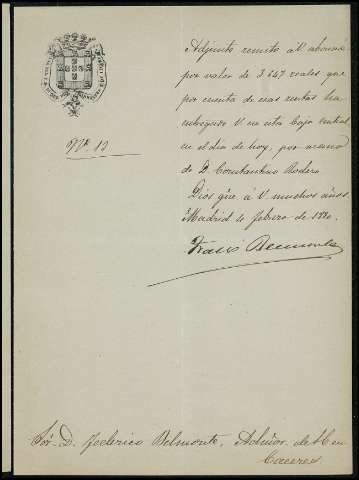 Nº. 10
Adjunto remito á V. abonaré
por valor de 3.647 reales que
por cuenta de esas rentas ha
entregado V. en esta Caja central
en el dia de hoy, por mano
de D. Constantino Rodero
Dios gue á V. muchos años.
Madrid 4 febrero de 1880.
Sór. D. Federico Belmonte, Admór. de
Caceres.